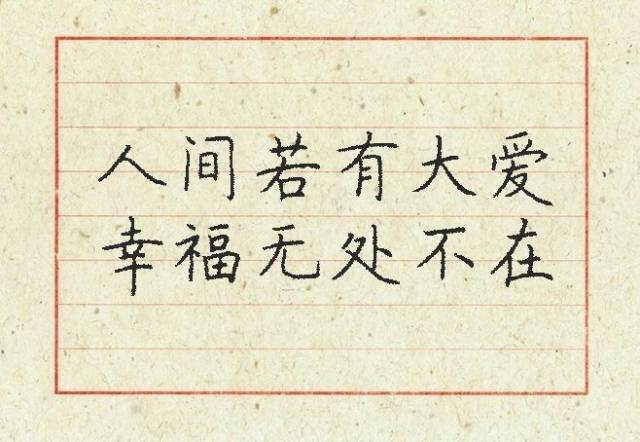 人间若有大爱
幸福无处不在